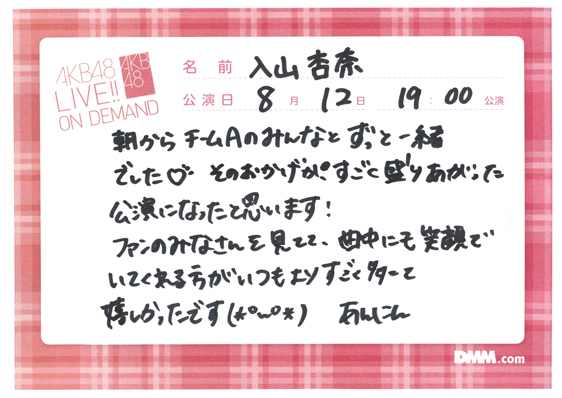 AKB48
LIVE!!
ON DEMAND
AKB
48
名前 入山杏奈
公演日 8月 12日 19:00 公演
朝からチームAのみんなとずっと一緒
でした♡ そのおかげか、すごく盛りあがった
公演になったと思います!
ファンのみなさんを見てて、曲中にも笑顔で
いてくれる方がいつもよりすごく多くて
嬉しかったです(*°ω°*) あんにん
DMM.com